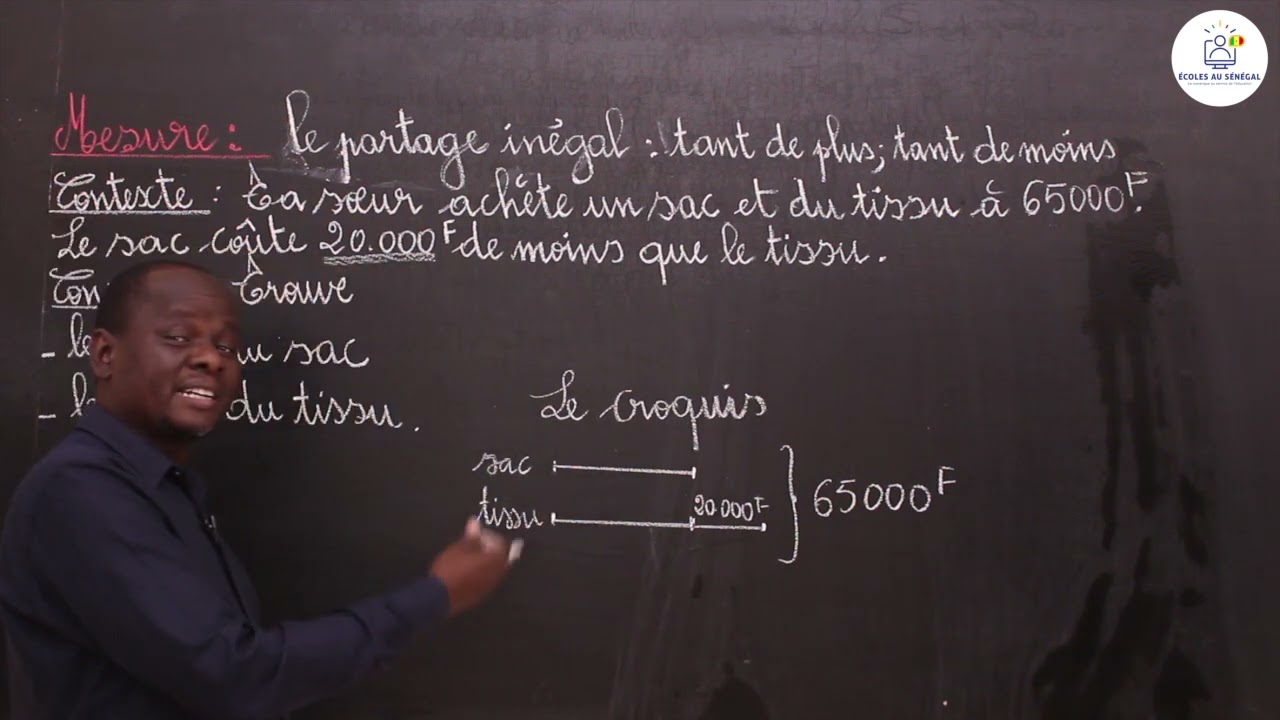 Mesure : le partage inégal : tant de plus; tant de moins
Contexte : Ta sœur achète un sac et du tissu à 65000F.
Le sac coûte 20.000F de moins que le tissu.
Trouve
- sac
- du tissu.
Le croquis
sac
tissu 20.000F
65000F
ÉCOLES AU SÉNÉGAL